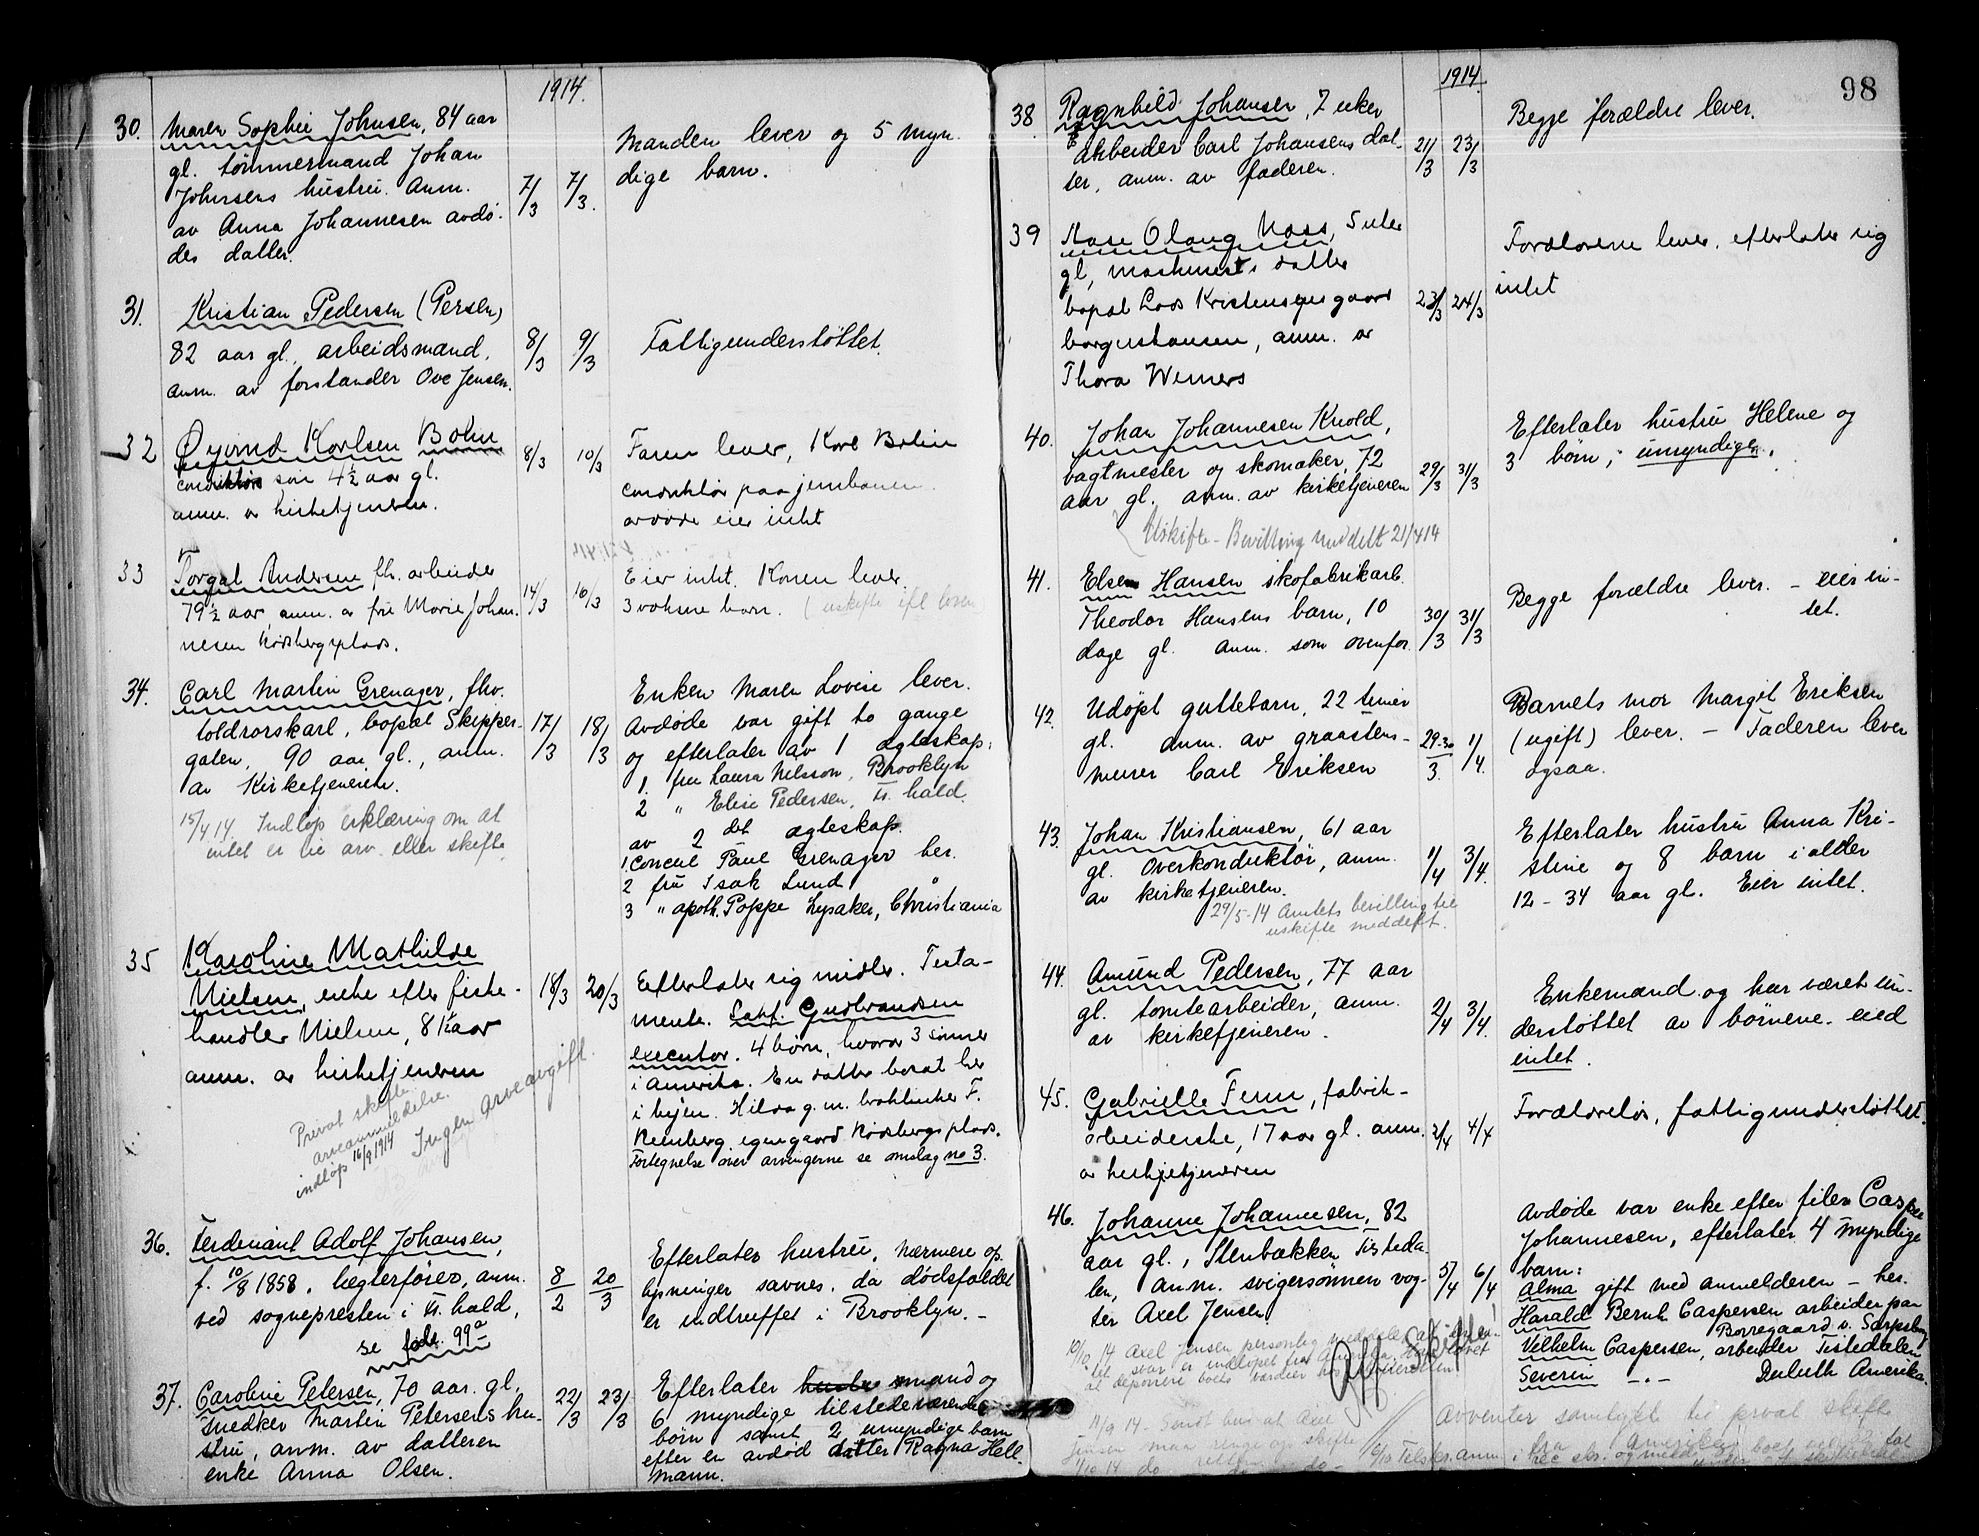 1914.
30. Maren Sophie Johnsen, 84 aar
gl. tømmermand Johan
Johnsens hustru. Anm.
av Anna Johannesen avdø-
des datter.
7/3 7/3.
Manden lever og 5 myn-
dige barn.
31. Kristian Pedersen (Persen)
82 aar gl. arbeidsmand,
anm. av forstander Ove Jensen.
8/3 9/3
Fattigunderstøttet.
32 Øyvind Karlsen Bohn
conduktør søn 4½ aar gl.
anm. av kirketjeneren.
8/3 10/3
Faren lever, Karl Bohn
conduktør paa jernbanen
avdøde eier intet
33 Torgal Andersen fh. arbeider
79½ aar, anm. av fru Marie Johan-
nesen Rødsbergplads.
14/3 16/3
Eier intet. Konen lever.
3 voksne barn. (uskifte ifl loven
34. Carl Martin Grenager, fhv.
toldrorskarl, bopæl Skipper-
gaten, 90 aar gl., anm.
av Kirketjeneren.
17/3 18/3
15/4 14. Indløp erklæring om at
intet er til arv eller skifte
Enken Maren Lovise lever.
Avdøde var gift to gange
og efterlater av 1 ægteskap:
1. fru Laura Nelsson, Brooklyn
2 " Elise Pedersen, Fr. hald.
av 2 det ægteskap.
1. Concul Paul Grenager her.
2 fru Isak Lund "
3 " apoth. Poppe Lysaker, Christiania
35 Karoline Mathilde
Nielsen, enke efter fiske-
handler Nielsen, 81½ aar
anm. av kirketjeneren
18/3 20/3
Privat skifte
arveanmeldelse.
indløp 16/9 1914
Ingen arveavgift.
Efterlater sig midler. Testa-
mente. Sakf. Gudbrandsen
executor. 4 børn, hvorav 3 sønner
i Amerika. En datter bosat her
i byen. Hilda g. m. Kunberg egengaard Rødsbergs plads.
Fortegnelse over arvingerne se omslag no 3.
36. Ferdinant Adolf Johansen,
f. 10/8 1858, lægterfører, anm.
ved sognepresten i Fr. hald,
se fole. 99a
8/2 20/3
Efterlater hustru, nærmere op-
lysninger savnes, da dødsfaldet
er indtruffet i Brooklyn. -
37. Caroline Petersen, 70 aar. gl.
snedker Martin Petersens hu-
stru, anm. av datteren
enke Anna Olsen.
22/3 23/3
Efterlater hustru mand og
6 myndige tilstedeværende
børn samt 2 umyndige barn
efter en avdød datter Ragna Hell-
mann.
98
1914.
38 Ragnhild Johansen, 7 uker
arbeider Carl Johansens dat-
ter, anm. av faderen.
21/3 23/3
Begge forældre lever.
39 Aase Olaug Moss, 5 uker
gl, maskinists datter
bopæl Lods Kristensens gaard
borgerskansen, anm. av
Thora Werners
23/3 24/3
Forældrene lever, efterlater sig
intet
40. Johan Johannesen Knold,
vagtmester og skomaker, 72
aar gl. anm. av kirketjeneren
29/3 31/3
Uskifte - Bevilling meddelt 21/4 14
Efterlater hustru Helene og
3 børn, umyndige.
41. Else Hansen skofabrikarb.
Theodor Hansens barn, 10
dage gl. anm. som ovenfor
30/3 31/3
Begge forældre lever. - eier in-
tet.
42. Udøpt guttebarn, 22 timer
gl. anm. av graastens-
murer Carl Eriksen
29-30/3. 1/4.
Barnets mor Margit Eriksen
(ugift) lever. - Faderen lever
ogsaa.
43. Johan Kristiansen, 61 aar
gl. overkonduktør, anm.
av kirketjeneren.
1/4 3/4.
29/5-14 Amtets bevilling til
uskifte meddelt.
Efterlater hustru Anna Kri-
stine og 8 barn i alder
12 - 34 aar gl. Eier intet.
44. Amund Pedersen, 77 aar
gl. tomtearbeider, anm.
av kirketjeneren.
2/4 3/4.
Enkemand og har været un-
derstøttet av børnene. eied
intet.
45. Gabrielle Fenn, fabrik-
arbeiderske, 17 aar gl. anm.
av kirkjetjeneren
2/4 4/4
Forældreløs, fattigunderstøttet.
46. Johanne Johannesen, 82
aar gl., Stenbækken Tisteda-
len, anm. svigersønnen vog-
ter Axel Jensen
5/4 6/4
10/10 14 Axel Jensen personlig meddeler at
svar er indløpet fra Amerika. Han lovet
at deponere boets værdier
Aff. Skifte!
Avdøde var enke efter filer Casper
Johannesen, efterlater 4 myndige
barn:
Alma gift med anmelderen - her.
Harald Bernh Caspersen arbeider paa
Borregaard v. Sarpsborg
Vilhelm Caspersen, arbeider Tistedalen
Severin -.- Duluth Amerika.
14/9 14 - Sendt bud at Axel
Jensen maa ringe op skifte
retten
Avventer samtykke til privat skifte
fra Amerika